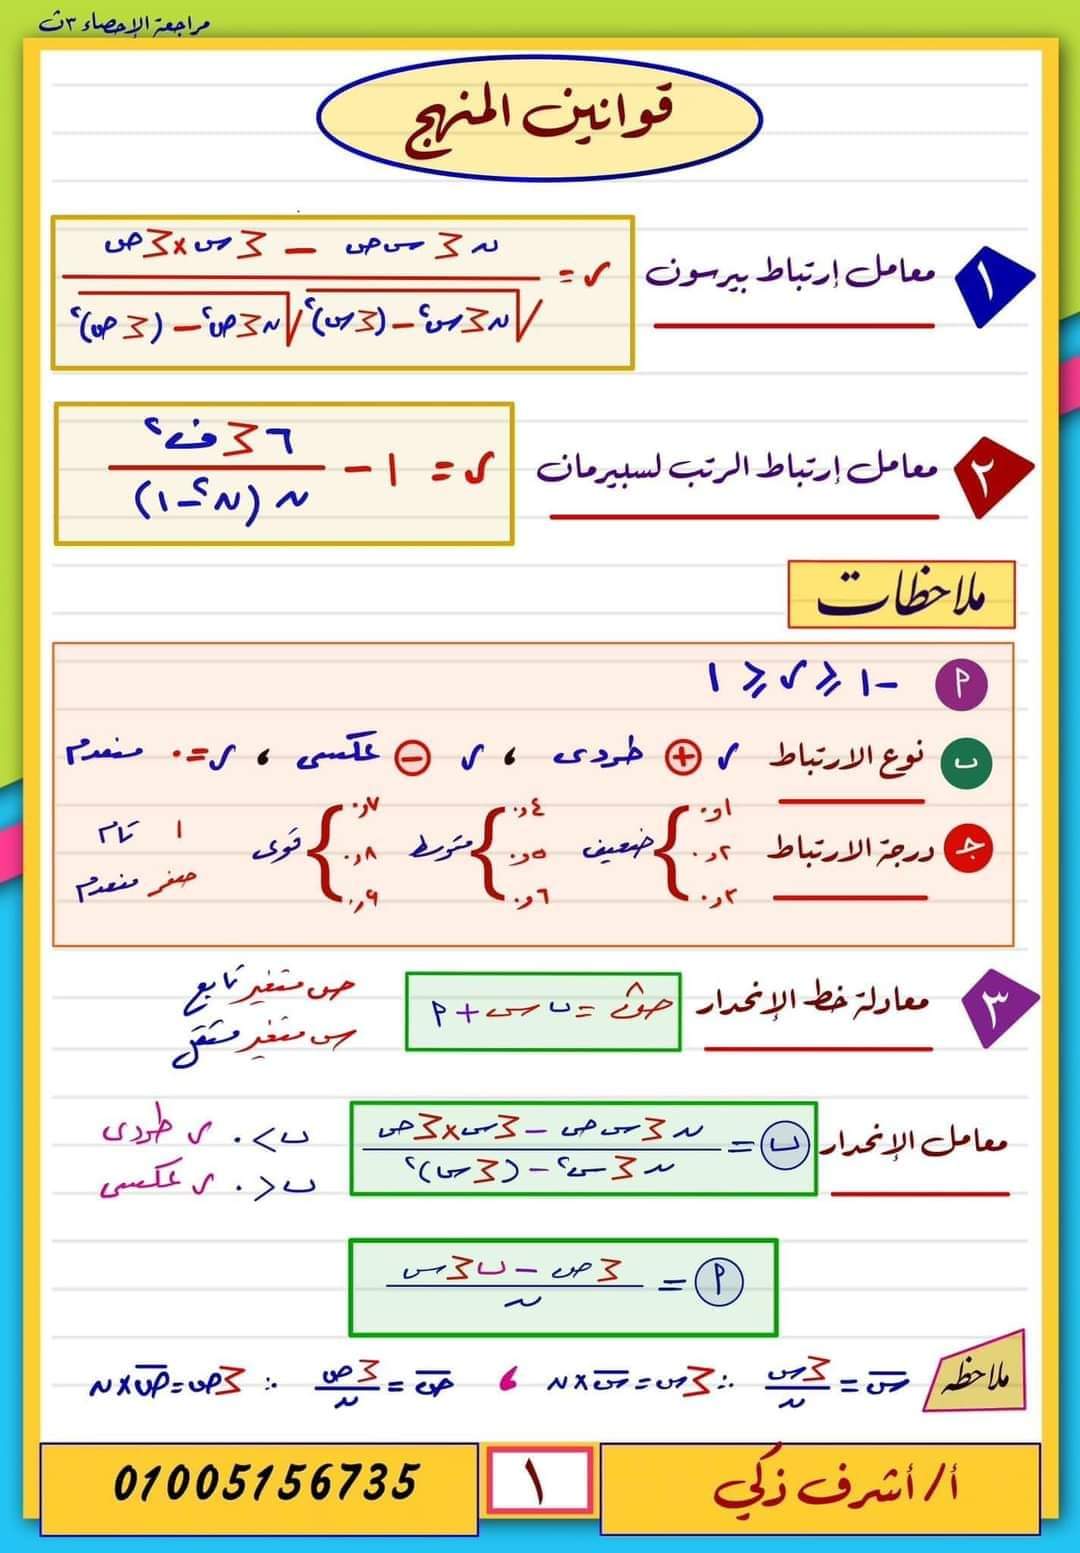 مراجعة الإحصاء ٣ث
قوانين المنهج
١ معامل إرتباط بيرسون
ر = (ن ∑ س ص − ∑ س × ∑ ص) / (√(ن ∑ س² − (∑ س)²) √(ن ∑ ص² − (∑ ص)²))
٢ معامل إرتباط الرتب لسبيرمان
ر = ١ − (٦ ∑ ف²) / (ن (ن² − ١))
ملاحظات
أ −١ ⩽ ر ⩽ ١
ب نوع الارتباط ر ⊕ طردى ، ر ⊖ عكسى ، ر = ٠ منعدم
جـ درجة الارتباط
٠,١ ٠,٢ ٠,٣ } ضعيف
٠,٤ ٠,٥ ٠,٦ } متوسط
٠,٧ ٠,٨ ٠,٩ } قوى
١ تام
صفر منعدم
٣ معادلة خط الإنحدار ص̂ = ب س + أ
ص متغير تابع
س متغير مستقل
معامل الإنحدار ب = (ن ∑ س ص − ∑ س × ∑ ص) / (ن ∑ س² − (∑ س)²)
ب > ٠ ر طردى
ب < ٠ ر عكسى
أ = (∑ ص − ب ∑ س) / ن
ملاحظه س̅ = ∑ س / ن ∴ ∑ س = س̅ × ن ، ص̅ = ∑ ص / ن ∴ ∑ ص = ص̅ × ن
أ/ أشرف زكي
١
01005156735